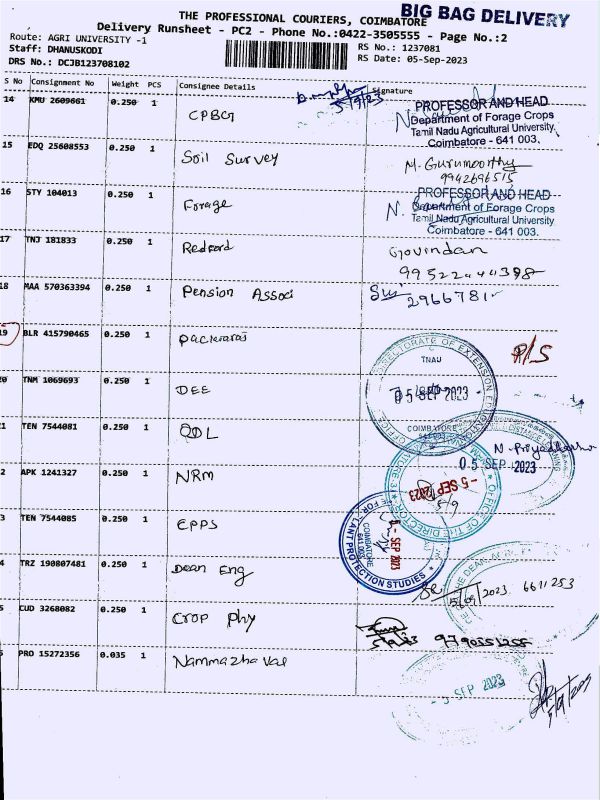 BIG BAG DELIVERY
THE PROFESSIONAL COURIERS, COIMBATORE
Delivery Runsheet - PC2 - Phone No.:0422-3505555 - Page No.:2
Route: AGRI UNIVERSITY -1
RS No.: 1237081
Staff: DHANUSKODI
RS Date: 05-Sep-2023
DRS No.: DCJB123708102
S No Consignment No Weight PCS Consignee Details Signature
14 KMU 2609661 0.250 1 CPBG
5/9/23
PROFESSOR AND HEAD
Department of Forage Crops
Tamil Nadu Agricultural University,
Coimbatore - 641 003.
15 EDQ 25608553 0.250 1 Soil Survey
M. Gurumoorthy
9942696515
16 STY 104013 0.250 1 Forage
PROFESSOR AND HEAD
Department of Forage Crops
Tamil Nadu Agricultural University
Coimbatore - 641 003.
17 TNJ 181833 0.250 1 Redford
Govindan
18 MAA 570363394 0.250 1 Pension Associ
2966781
19 BLR 415790465 0.250 1 Packiaraj
R/S
DIRECTORATE OF EXTENSION EDUCATION
TNAU
05 SEP 2023
COIMBATORE
0 TNM 1069693 0.250 1 DEE
1 TEN 7544081 0.250 1 ODL
05 SEP 2023
2 APK 1241327 0.250 1 NRM
OFFICE OF THE DIRECTOR
-5 SEP 2023
5/9
3 TEN 7544085 0.250 1 CPPS
PLANT PROTECTION STUDIES
COIMBATORE
641 003
5 - SEP 2023
4 TRZ 190807481 0.250 1 Dean Eng
5/09/2023 6611253
5 CUD 3268082 0.250 1 Crop Phy
5/9/23 9790551255
PRO 15272356 0.035 1 Nammazhavar
- 5 SEP 2023